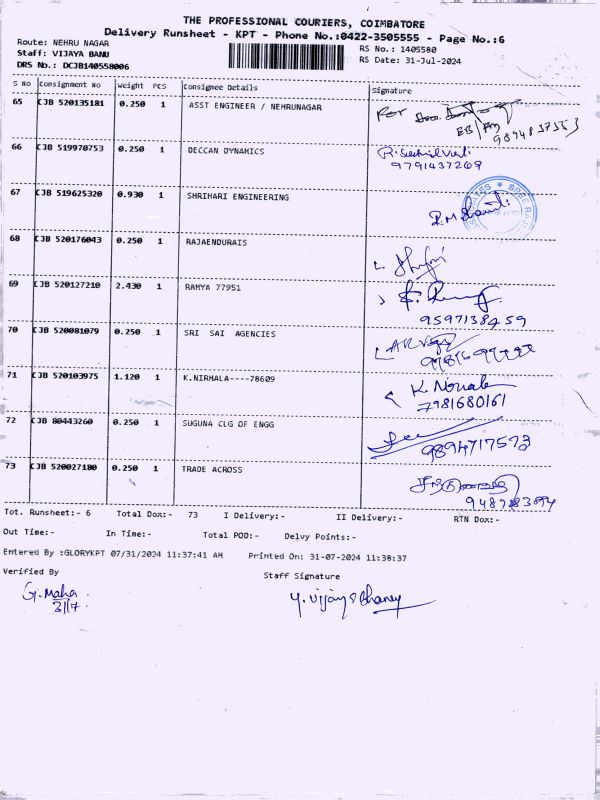 THE PROFESSIONAL COURIERS, COIMBATORE
Delivery Runsheet - KPT - Phone No.:0422-3505555 - Page No.:6
Route: NEHRU NAGAR
Staff: VIJAYA BANU
DRS No.: DCJB140558006
RS No.: 1405580
RS Date: 31-Jul-2024
S No Consignment No Weight PCS Consignee Details Signature
65 CJB 520135181 0.250 1 ASST ENGINEER / NEHRUNAGAR For
EB
9894837553
66 CJB 519970753 0.250 1 DECCAN DYNAMICS
9791437269
67 CJB 519625320 0.930 1 SHRIHARI ENGINEERING
68 CJB 520176043 0.250 1 RAJAENDURAIS
69 CJB 520127210 2.430 1 RAMYA 77951
9597138459
70 CJB 520081079 0.250 1 SRI SAI AGENCIES
71 CJB 520103975 1.120 1 K.NIRMALA----78609 K. Nirmala
7981680161
72 CJB 80443260 0.250 1 SUGUNA CLG OF ENGG
9894717573
73 CJB 520027180 0.250 1 TRADE ACROSS
Tot. Runsheet:- 6 Total Dox:- 73 I Delivery:- II Delivery:- RTN Dox:-
Out Time:- In Time:- Total POD:- Delvy Points:-
Entered By :GLORYKPT 07/31/2024 11:37:41 AM Printed On: 31-07-2024 11:38:37
Verified By Staff Signature
G. Maha
31/7.